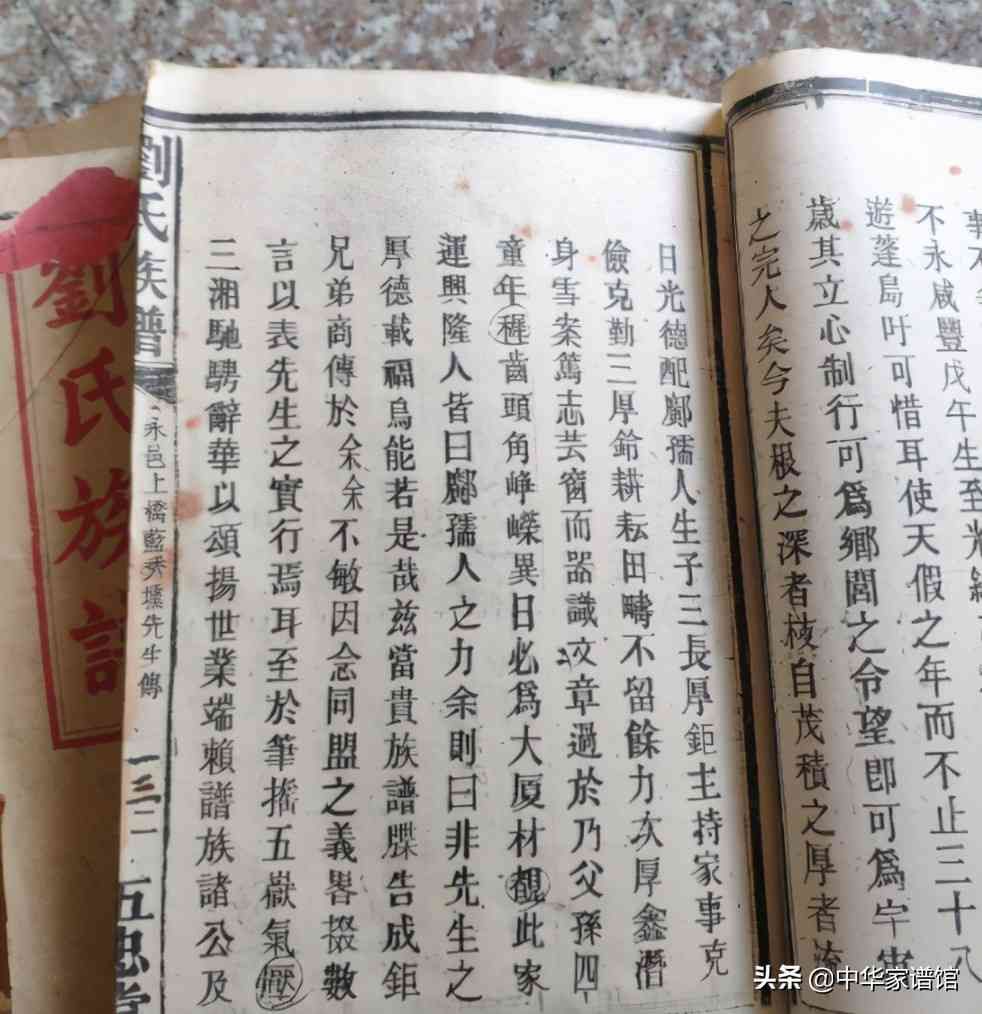 事不
不永咸豐戊午生至光緒
遊蓬島吁可惜耳使天假之年而不止三十八
歲其立心制行可爲鄉閭之令望卽可爲宇宙
之完人矣今夫根之深者枝自茂積之厚者流
日光德配鄺孺人生子三長厚鉅主持家事克
儉克勤三厚鈴耕耘田疇不留餘力次厚鑫潛
身雪案篤志芸窗而器識文章過於乃父孫四
童年穉齒頭角崢嶸異日必爲大厦材覩此家
運興隆人皆曰鄺孺人之力余則曰非先生之
厚德載福烏能若是哉茲當貴族譜牒告成鉅
兄弟商傳於余余不敏因念同盟之義畧掇數
言以表先生之實行焉耳至於筆搖五嶽氣壓
三湘馳騁辭華以頌揚世業端賴譜族諸公及
劉氏族譜
永邑上橋藍秀壎先生傳
一三二
五忠堂
劉氏族譜
头条 @中华家谱馆